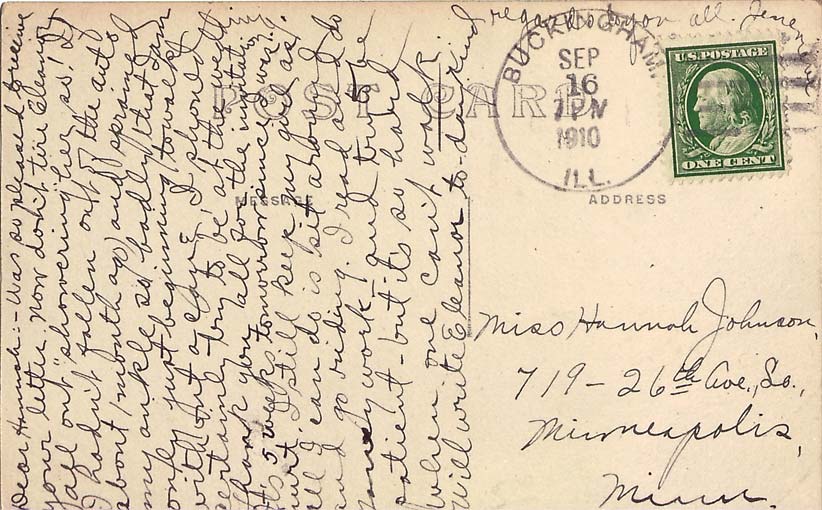 Dear Hannah:- Was so pleased to receive
your letter. Now don't tire Eleanor
all out "showering" her so! If
I hadn't fallen out of the auto
about 1 month ago and sprained
my ankle so badly that I am
only just beginning to walk
without a cane I should
certainly try to be at the wedding
Thank you all for the invitation
It's 5 weeks tomorrow since I was
hurt. I still keep my girl as
all I can do is sit around
and go riding. I read and do
fancy work and try to be
patient - but it's so hard
when one can't walk.
Will write Eleanor to-day. Kind
regards to you all.
POST CARD
BUCKINGHAM,
SEP
16
7 PM
1910
ILL.
U.S. POSTAGE
ONE CENT
MESSAGE
ADDRESS
Miss Hannah Johnson,
719 - 26th Ave., So.,
Minneapolis,
Minn.